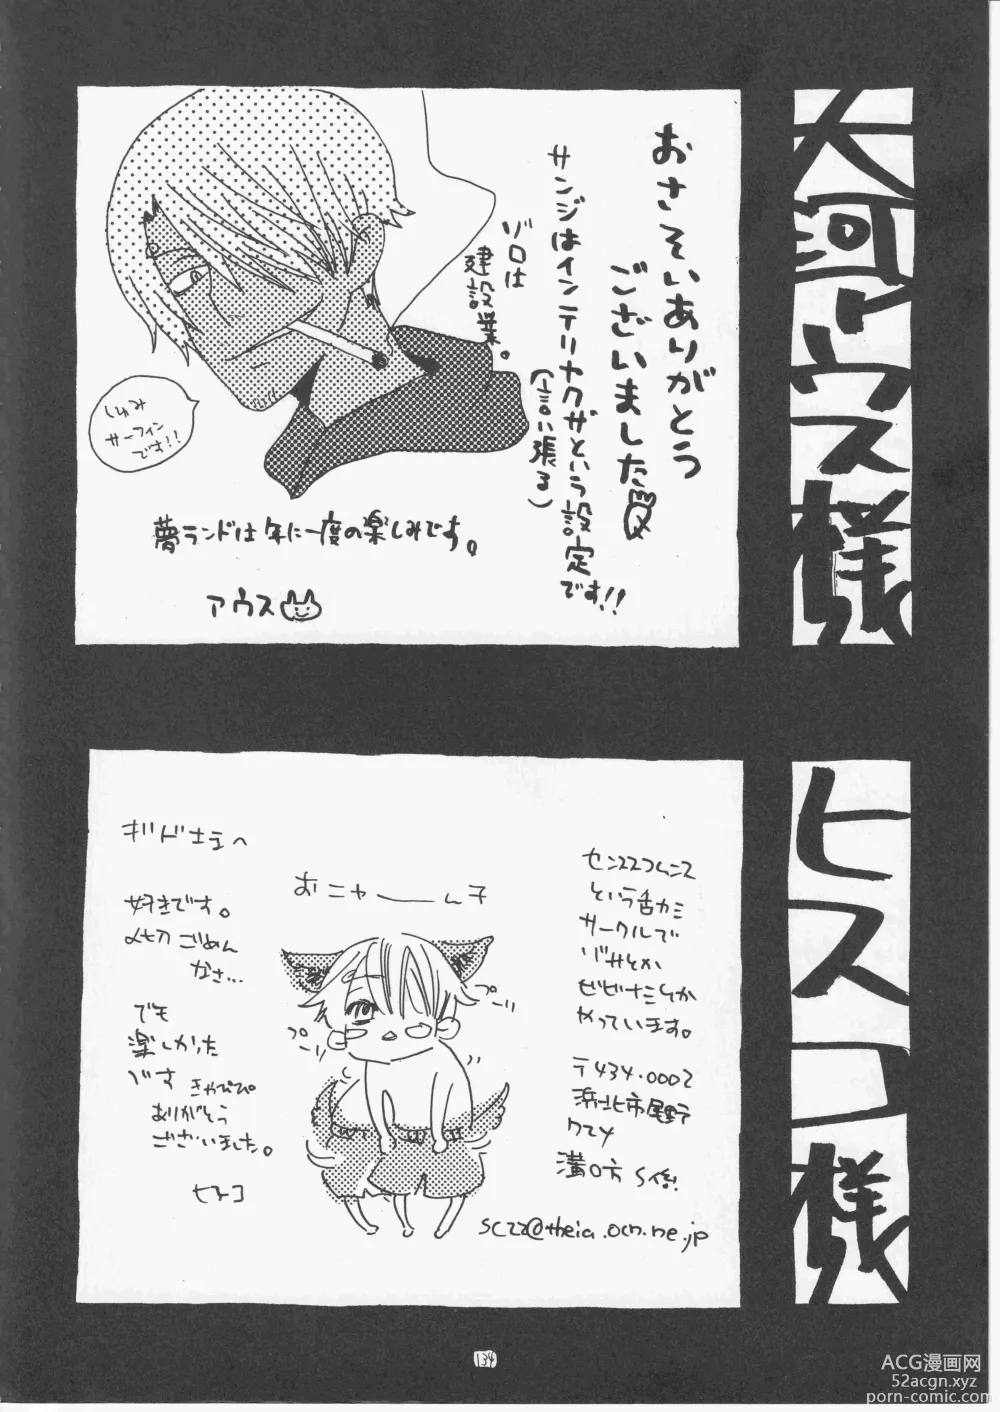 大河アウス様
おさそいありがとう
ございました
サンジはインテリヤクザという設定です!!
(言い張る)
ゾロは
建設業。
サーフィン
です!!
夢ランドは年に一度の楽しみです。
アウス
ヒスコ様
おニャーーん子
プーリ
プーリ
という舌カミ
サークルで
やっています。
〒434-0002
浜北市尾野
溝口方 S係
sc22@theia.ocn.ne.jp
好きです。
〆切ごめん
なさ…
でも
楽しかった
です
きゃぴぴ
ありがとう
ございました。
ヒスコ
134
ACG漫画网
52acgn.xyz
porn-comic.com